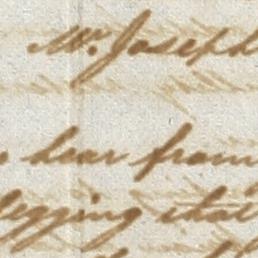 Mr. Joseph
hear from
begging that